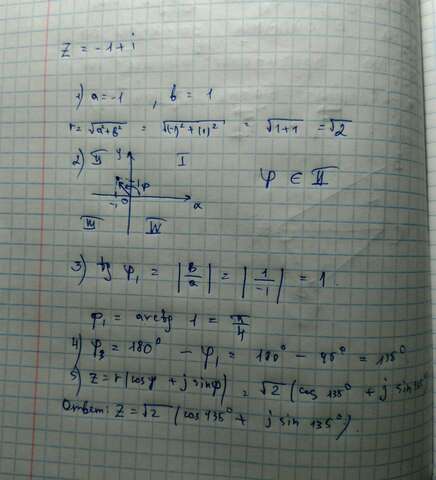 z = -1 + i
1) a = -1 , b = 1
r = √a²+b² = √(-1)² + (1)² = √1+1 = √2
2) II y I
φ
φ ∈ II
-1 0 x
III IV
3) tg φ₁ = |b/a| = |1/-1| = 1.
φ₁ = arctg 1 = π/4
4) φ₂ = 180° - φ₁ = 180° - 45° = 135°
5) z = r(cosφ + j sinφ) = √2 (cos 135° + j sin 135°)
Ответ: z = √2 (cos 135° + j sin 135°).